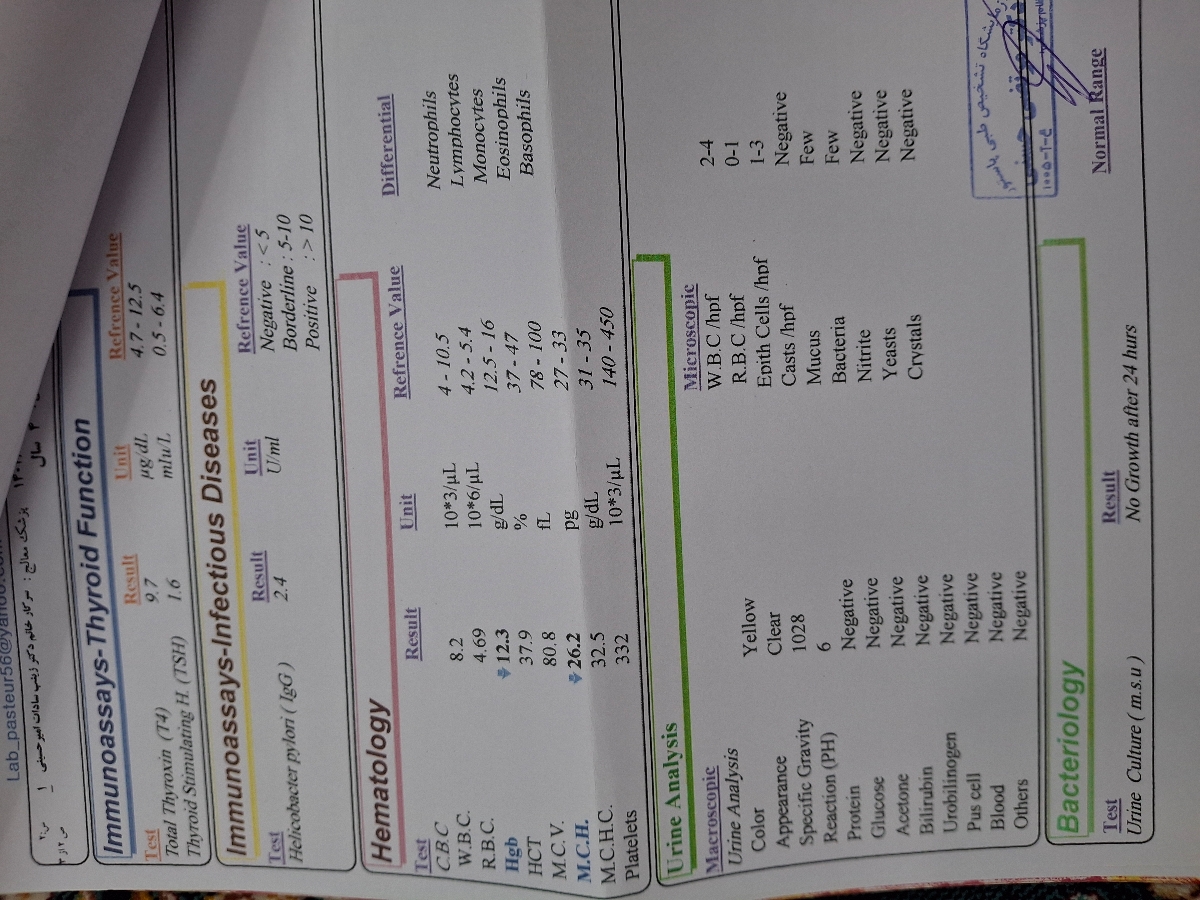 Lab_pasteur56@yahoo.com
پزشک معالج : سرکار خانم دکتر زینب سادات امیرحسینی
سال
Immunoassays-Thyroid Function
Test Result Unit Refrence Value
Total Thyroxin (T4) 9.7 µg/dL 4.7 - 12.5
Thyroid Stimulating H. (TSH) 1.6 mIu/L 0.5 - 6.4
Immunoassays-Infectious Diseases
Test Result Unit Refrence Value
Helicobacter pylori ( IgG ) 2.4 U/ml Negative : < 5
Borderline : 5-10
Positive : > 10
Hematology
Test Result Unit Refrence Value Differential
C.B.C
W.B.C. 8.2 10*3/µL 4 - 10.5 Neutrophils
R.B.C. 4.69 10*6/µL 4.2 - 5.4 Lymphocytes
Hgb 12.3 g/dL 12.5 - 16 Monocytes
HCT 37.9 % 37 - 47 Eosinophils
M.C.V. 80.8 fL 78 - 100 Basophils
M.C.H. 26.2 pg 27 - 33
M.C.H.C. 32.5 g/dL 31 - 35
Platelets 332 10*3/µL 140 - 450
Urine Analysis
Macroscopic Microscopic
Urine Analysis W.B.C /hpf 2-4
Color Yellow R.B.C /hpf 0-1
Appearance Clear Epith Cells /hpf 1-3
Specific Gravity 1028 Casts /hpf Negative
Reaction (PH) 6 Mucus Few
Protein Negative Bacteria Few
Glucose Negative Nitrite Negative
Acetone Negative Yeasts Negative
Bilirubin Negative Crystals Negative
Urobilinogen Negative
Pus cell Negative
Blood Negative
Others Negative
آزمایشگاه تشخیص طبی پاستور
Bacteriology
Test Result Normal Range
Urine Culture ( m.s.u ) No Growth after 24 hurs